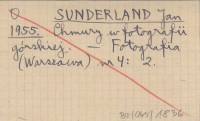 SUNDERLAND Jan
1955. Chmury w fotografii
górskiej. — Fotografia
(Warszawa) nr 4: 2.